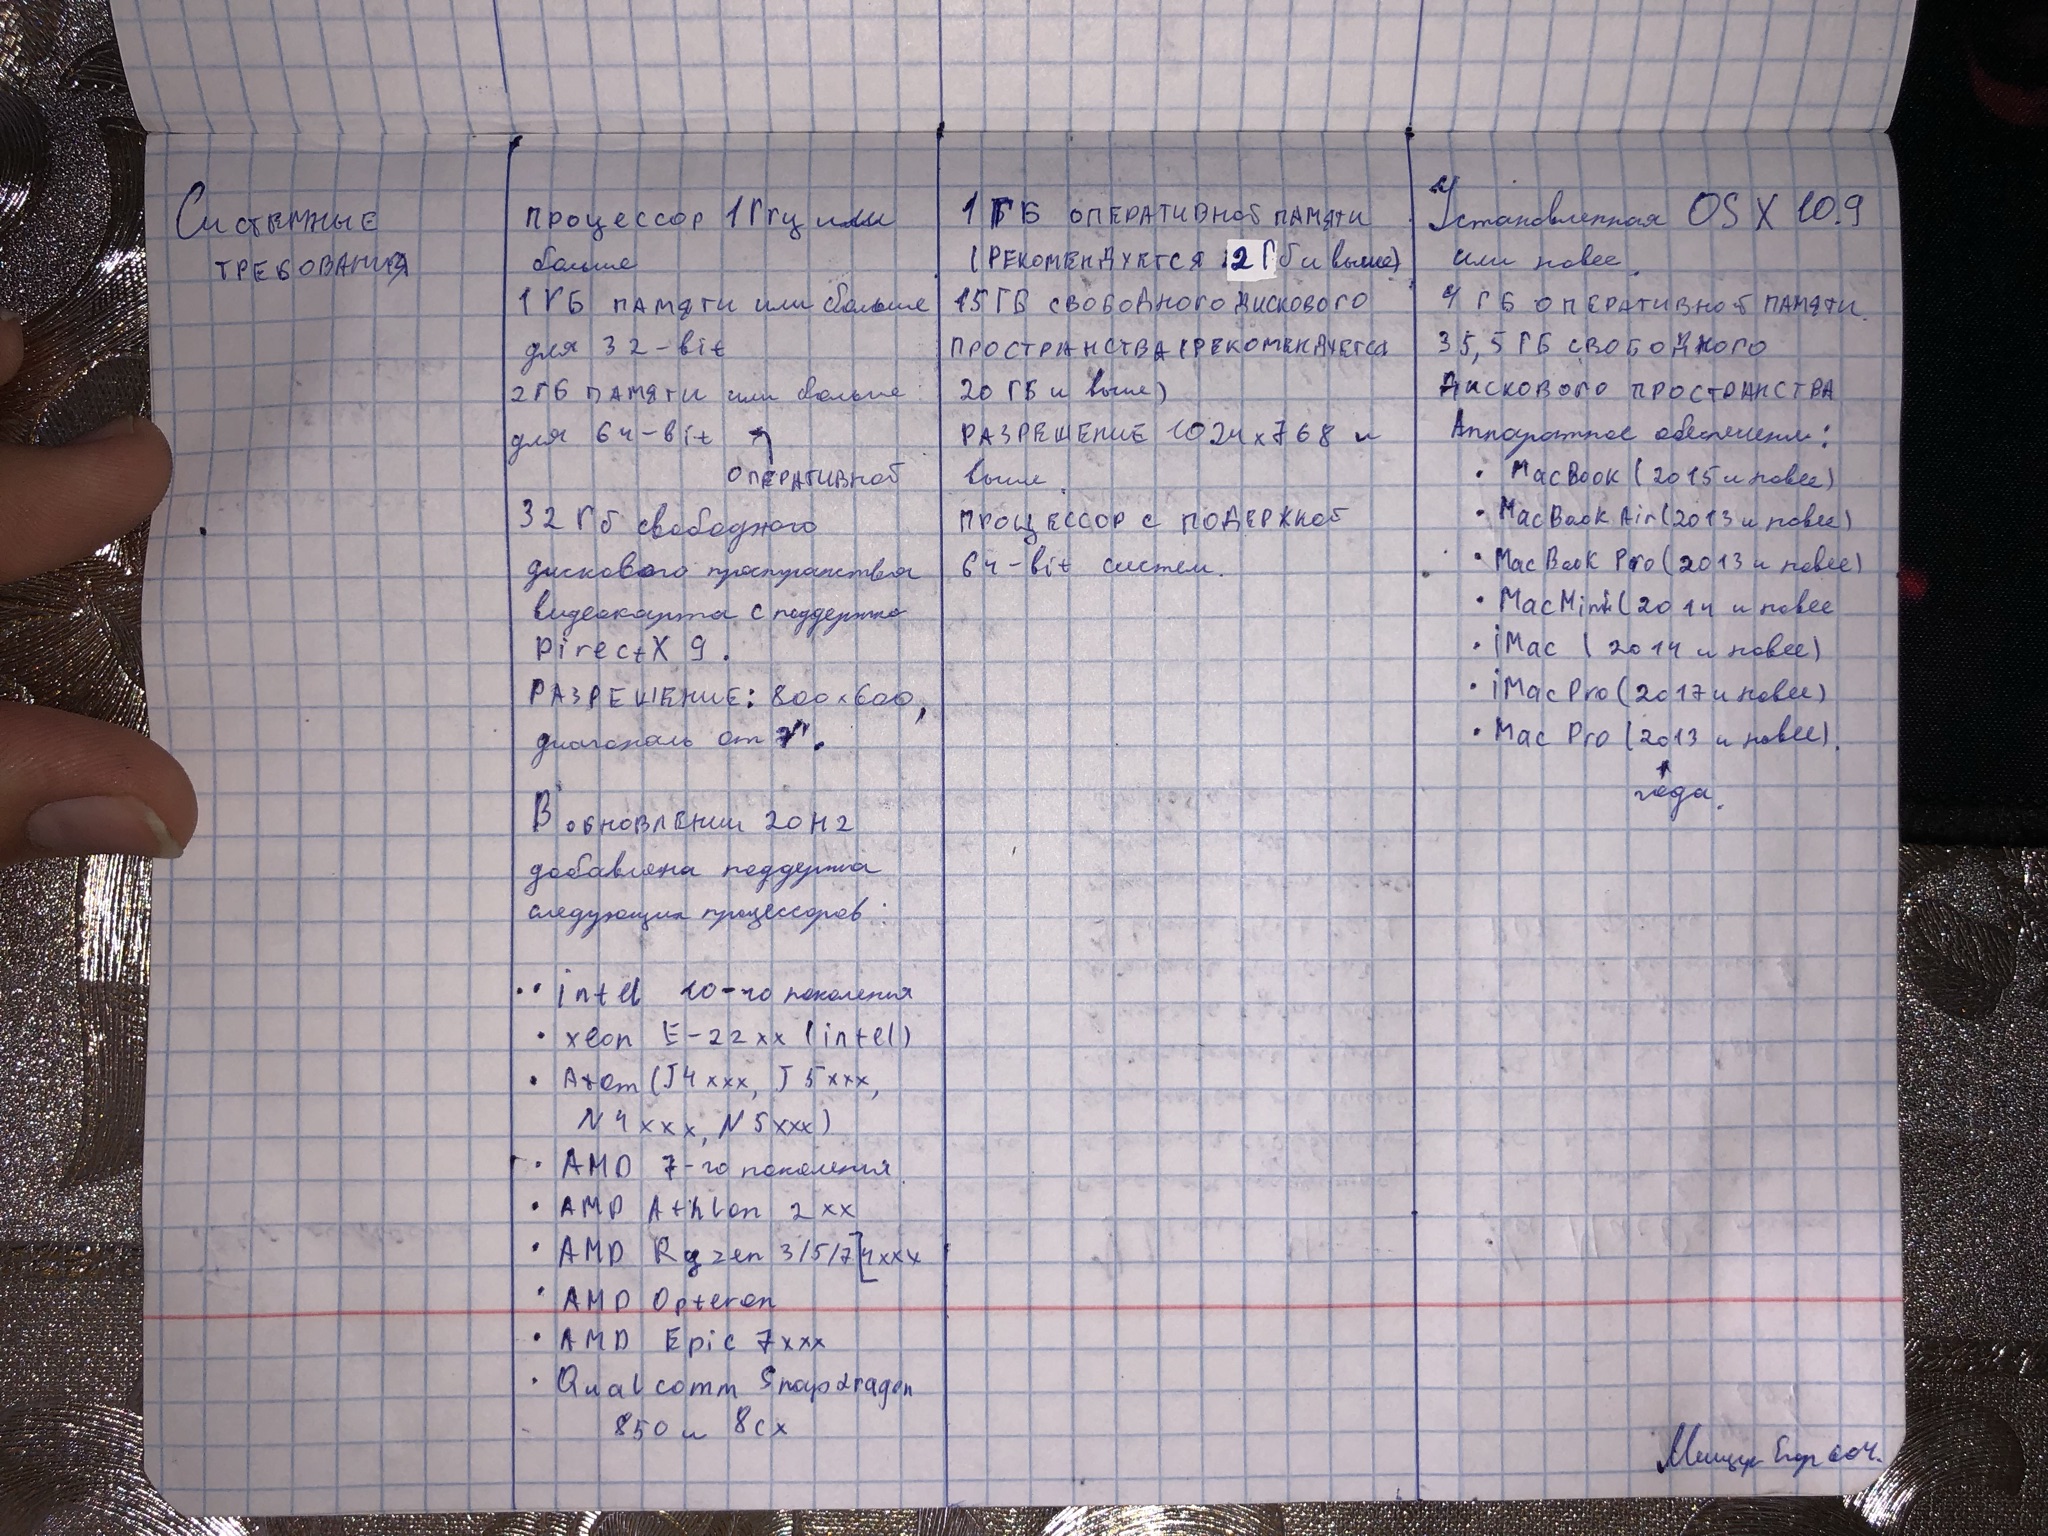 Системные
требования
процессор 1 Ггц или
больше
1 ГБ памяти или больше
для 32-bit
2 ГБ памяти или больше
для 64-bit
оперативной
32 Гб свободного
дискового пространства
видеокарта с поддержко
DirectX 9.
Разрешение: 800x600,
диагональ от 7".
В обновлении 20H2
добавлена поддержка
следующих процессоров:
•• intel 10-го поколения
• xeon E-22xx (intel)
• Atom (J4xxx, J5xxx,
N4xxx, N5xxx)
• AMD 7-го поколения
• AMD Athlon 2xx
• AMD Ryzen 3/5/7[4xxx
• AMD Opteron
• AMD Epic 7xxx
• Qualcomm Snapdragon
850 и 8cx
1 ГБ оперативной памяти
(рекомендуется 2 Гб и выше)
15 ГБ свободного дискового
пространства (рекомендуется
20 ГБ и выше)
Разрешение 1024x768 и
выше.
процессор с подержкой
64-bit систем.
Установленная OS X 10.9
или новее.
4 ГБ оперативной памяти.
35,5 ГБ свободного
дискового пространства
Аппаратное обеспечение:
• MacBook (2015 и новее)
• MacBook Air (2013 и новее)
• MacBook Pro (2013 и новее)
• MacMini (2014 и новее
• iMac (2014 и новее)
• iMac Pro (2017 и новее)
• Mac Pro (2013 и новее).
года.
Егор 604.